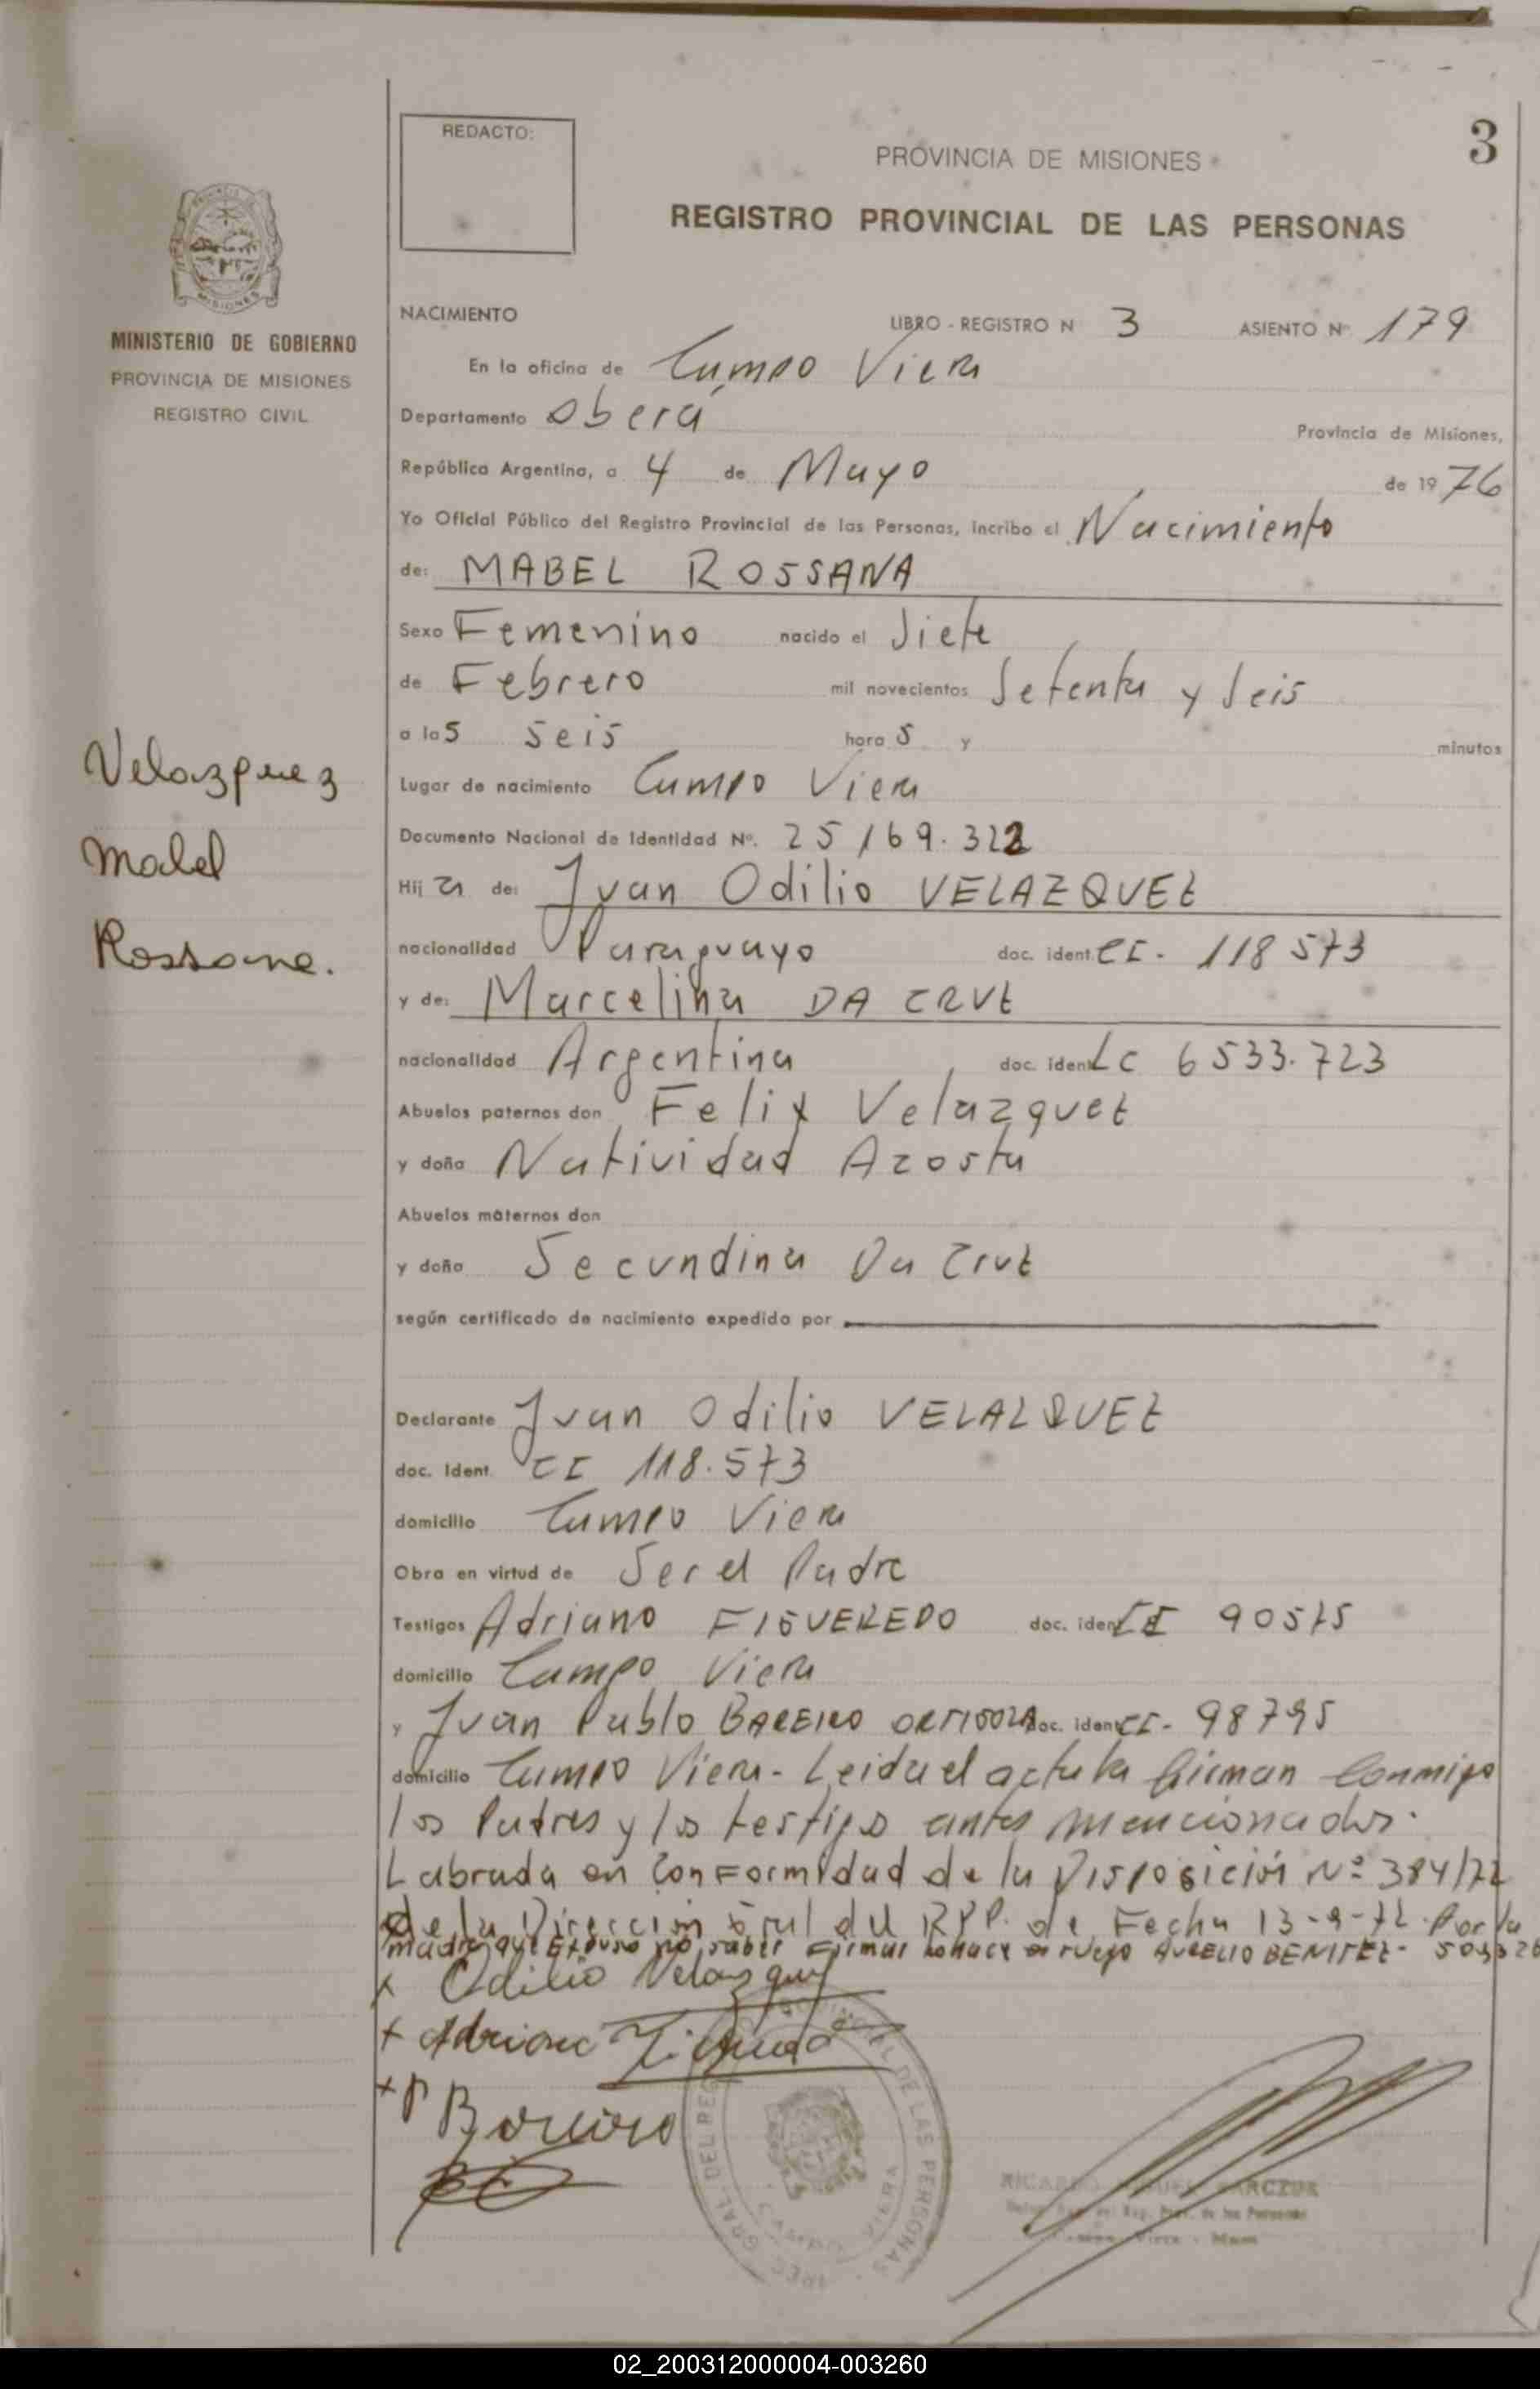 3
REDACTO:
PROVINCIA DE MISIONES
REGISTRO PROVINCIAL DE LAS PERSONAS
MISIONES
MINISTERIO DE GOBIERNO
PROVINCIA DE MISIONES
REGISTRO CIVIL
Velazquez
Mabel
Rossana.
NACIMIENTO LIBRO - REGISTRO N 3 ASIENTO Nº 179
En la oficina de Campo Viera
Departamento Oberá Provincia de Misiones,
República Argentina, a 4 de Mayo de 1976
Yo Oficial Público del Registro Provincial de las Personas, incribo el Nacimiento
de: MABEL ROSSANA
Sexo Femenino nacido el Siete
de Febrero mil novecientos Setenta y Seis
a las seis horas y minutos
Lugar de nacimiento Campo Viera
Documento Nacional de Identidad Nº. 25169.322
Hija de: Juan Odilio VELAZQUEZ
nacionalidad Paraguayo doc. ident. CI- 118573
y de: Marcelina DA CRUZ
nacionalidad Argentina doc. ident LC 6533.723
Abuelos paternos don Felix Velazquez
y doña Natividad Acosta
Abuelos maternos don
y doña Secundina Da Cruz
según certificado de nacimiento expedido por
Declarante Juan Odilio VELAZQUEZ
doc. Ident. CI 118.573
domicilio Campo Viera
Obra en virtud de Ser el Padre
Testigos Adriano FIGUEREDO doc. ident CI 90575
domicilio Campo Viera
y Juan Pablo BAREIRO doc. ident CI- 98795
domicilio Campo Viera- Leida el acta la firman conmigo
los Padres y los testigos antes mencionados.
Labrada en conformidad de la Disposición Nº 384/72
de la Dirección Gral del RPP. de Fecha 13-9-72. Por la
madre que Expuso no saber firmar lo hace a ruego AURELIO BENITEZ-
x Odilio Velazquez
x Adriano
x P Bareiro
DEL REG DE LAS PERSONAS
CAMPO VIERA
02_200312000004-003260